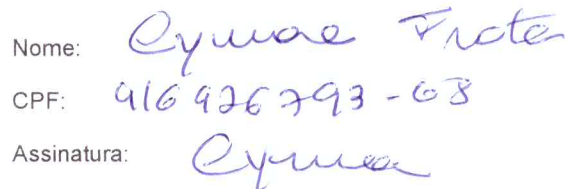 Nome: Cymae Frota
CPF: 416 926 793-68
Assinatura: Cymea